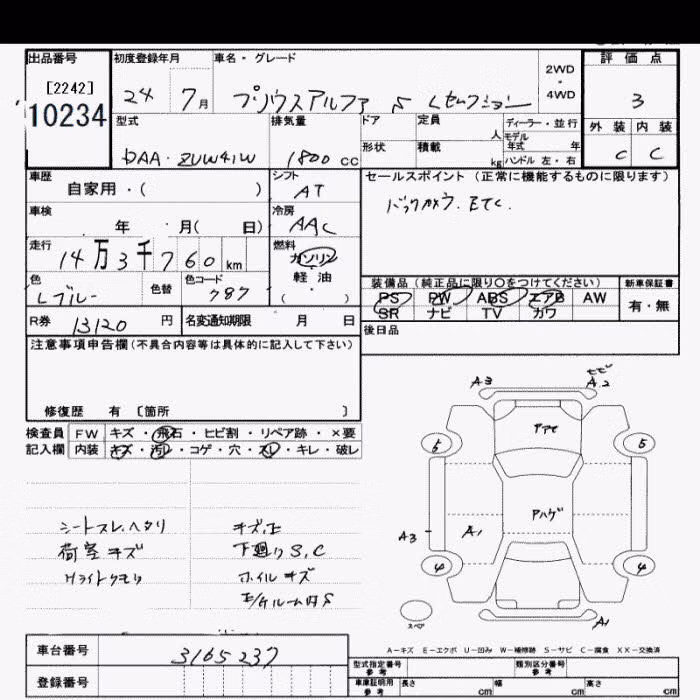 出品番号
[2242]
10234
初度登録年月
24 7月
車名・グレード
プリウスアルファ S Lセレクション
2WD
・
4WD
評価点
3
外装 内装
C C
型式
DAA・ZVW41W
排気量
1800 CC
ドア
形状
定員
人
積載
kg
ディーラー・並行
モデル
年式 年
ハンドル 左・右
車歴
自家用・( )
シフト
AT
セールスポイント (正常に機能するものに限ります)
バックカメラ. ETC.
車検
年 月( 日)
冷房
AAC
走行
14万3千760km
燃料
ガソリン
軽油
( ・ )
色
Lブルー
色替
色コード
787
装備品(純正品に限り○をつけてください)
PS PW ABS エアB AW
SR ナビ TV カワ
新車保証書
有・無
R券 13120 円
名変通知期限 月 日
後日品
注意事項申告欄(不具合内容等は具体的に記入して下さい)
修復歴 有 〔箇所 〕
検査員
記入欄
FW キズ・飛石・ヒビ割・リペア跡・×要
内装 キズ・汚レ・コゲ・穴・スレ・キレ・破レ
シートスレ、ヘタリ
荷室キズ
Hライトクモリ
キズ、凹
下廻りS,C
ホイルキズ
A3
A2
アアセ
5
5
アハゲ
A3
A1
4
4
スペア
A1
A-キズ E-エクボ U-凹み W-補修跡 S-サビ C-腐食 XX-交換済
車台番号 3165237
登録番号
型式指定番号
参考
類別区分番号
参考
車庫証明用
参考
長さ cm 幅 cm 高さ cm